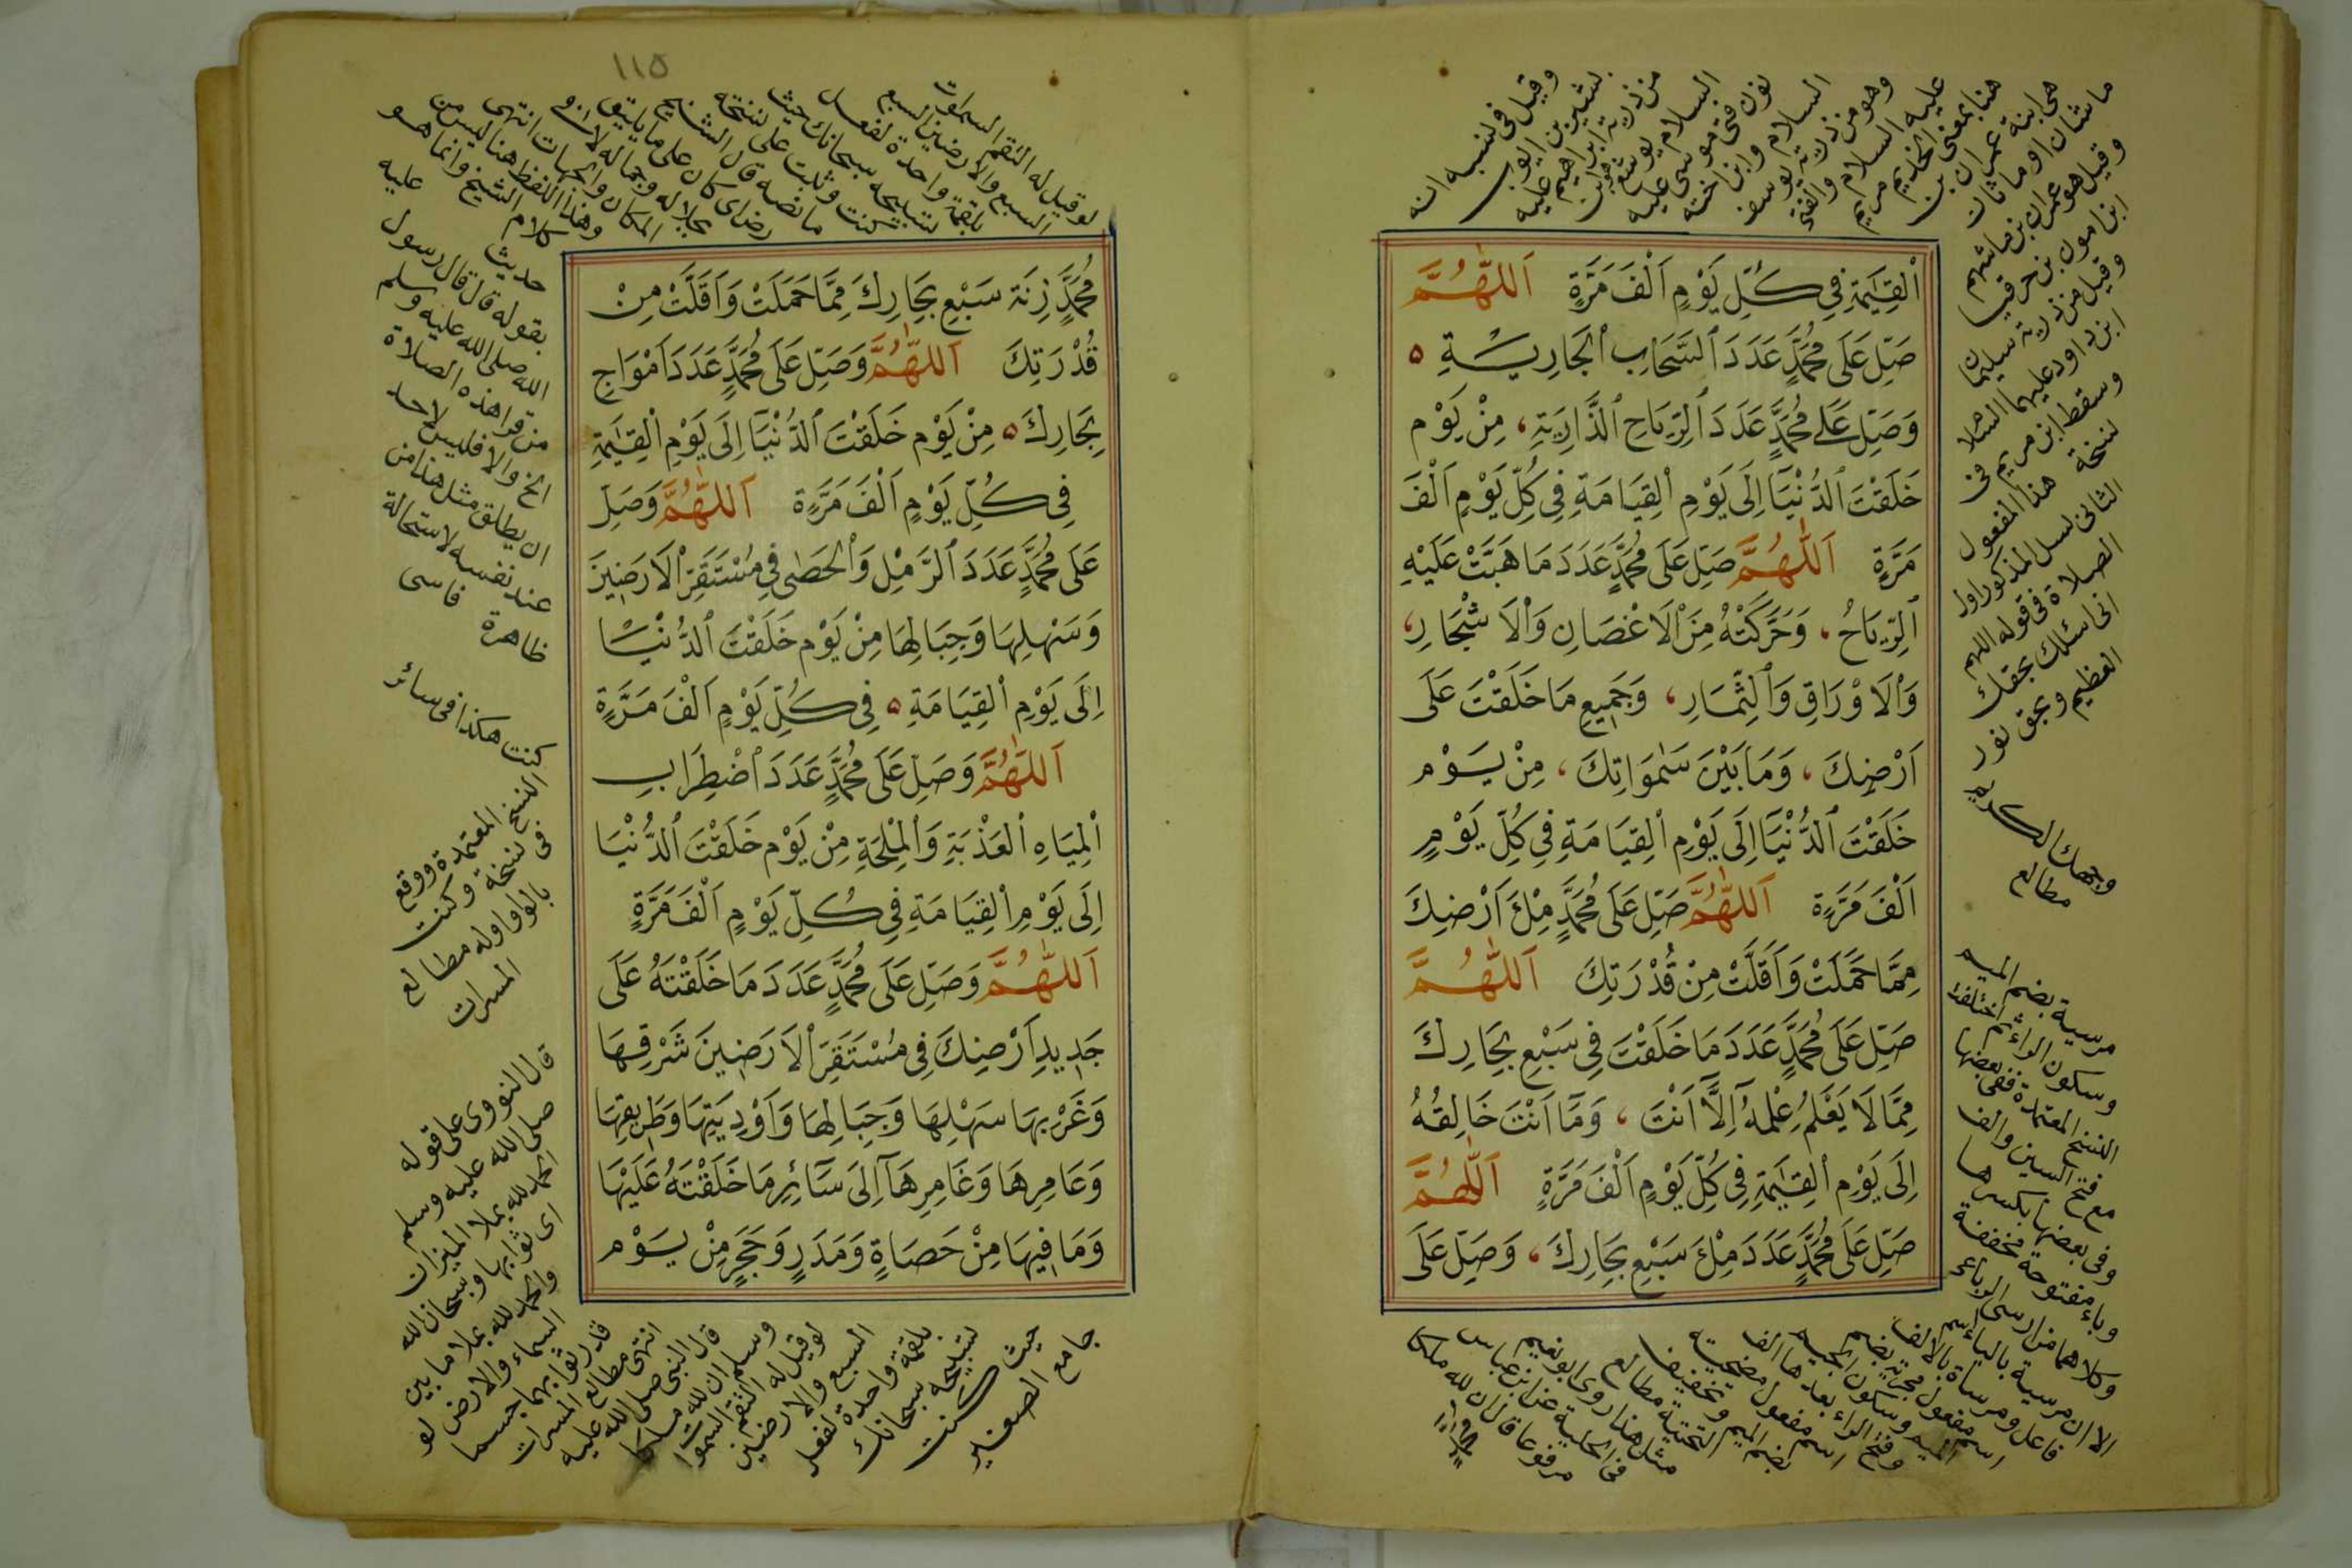 اَلْقِيٰمَةِ فِي كُلِّ يَوْمٍ اَلْفَ مَرَّةٍ اَللّٰهُمَّ
صَلِّ عَلَى مُحَمَّدٍ عَدَدَ ٱلسَّحَابِ ٱلْجَارِيَةِ ۵
وَصَلِّ عَلَى مُحَمَّدٍ عَدَدَ ٱلرِّيَاحِ ٱلذَّارِيَةِ، مِنْ يَوْمَ
خَلَقْتَ ٱلدُّنْيَآ اِلَى يَوْمِ ٱلْقِيَامَةِ فِي كُلِّ يَوْمٍ اَلْفَ
مَرَّةٍ اَللّٰهُمَّ صَلِّ عَلَى مُحَمَّدٍ عَدَدَ مَا هَبَّتْ عَلَيْهِ
ٱلرِّيَاحُ، وَحَرَّكَتْهُ مِنَ ٱلْاَغْصَانِ وَٱلْاَشْجَارِ،
وَٱلْاَوْرَاقِ وَٱلثِّمَارِ، وَجَمِيعِ مَا خَلَقْتَ عَلَى
اَرْضِكَ، وَمَا بَيْنَ سَمٰوَاتِكَ، مِنْ يَوْمَ
خَلَقْتَ ٱلدُّنْيَآ اِلَى يَوْمِ ٱلْقِيَامَةِ فِي كُلِّ يَوْمٍ
اَلْفَ مَرَّةٍ اَللّٰهُمَّ صَلِّ عَلَى مُحَمَّدٍ مِلْءَ اَرْضِكَ
مِمَّا حَمَلَتْ وَاَقَلَّتْ مِنْ قُدْرَتِكَ اَللّٰهُمَّ
صَلِّ عَلَى مُحَمَّدٍ عَدَدَ مَا خَلَقْتَ فِي سَبْعِ بِحَارِكَ
مِمَّا لَا يَعْلَمُ عِلْمَهُ اِلَّآ اَنْتَ، وَمَآ اَنْتَ خَالِقُهُ
اِلَى يَوْمِ ٱلْقِيٰمَةِ فِي كُلِّ يَوْمٍ اَلْفَ مَرَّةٍ اَللّٰهُمَّ
صَلِّ عَلَى مُحَمَّدٍ عَدَدَ مِلْءَ سَبْعِ بِحَارِكَ، وَصَلِّ عَلَى
وقيل فى نسبه انه
من ذرية ابراهيم عليه
السلام يوشع
نون فتى موسى عليه
السلام وابن اخته
وهو من ذرية يوسف
عليه السلام والفتى
هنا بمعنى الخديم مريم
هى ابنة عمران بن
ماشان او ماثان
وقيل هو عمران بن ماشهم
ابن امون بن حزقيا
وقيل من ذرية سليمان
ابن داود عليهما السلا
وسقط ابن مريم فى
نسخة هذا المفعول
الثانى لسل المذكور اول
الصلاة فى قوله اللهم
انى اسئلك بحقك
العظيم وبحق نور
وجهك الكريم
مطالع
مرسية بضم الميم
وسكون الراء ثم اختلفت
النسخ المعتمدة ففى بعضها
مع فتح السين والف
وفى بعضها بكسرها
وياء مفتوحة مخففة
وكلاهما من ارسى الرباعى
الا ان مرسية بالياء اسم
فاعل ومرساة بالالف
اسم مفعول مجرية بضم
الميم وسكون الجيم
وفتح الراء بعدها الف
اسم مفعول مضحية
بضم الميم وتخفيف
التحتية مطالع
مثل هذا روى ابو نعيم
فى الحلية عن ابن عباس
مرفوعا قال ان لله ملكا
١١٥
مُحَمَّدٍ زِنَةَ سَبْعِ بِحَارِكَ مِمَّا حَمَلَتْ وَاَقَلَّتْ مِنْ
قُدْرَتِكَ اَللّٰهُمَّ وَصَلِّ عَلَى مُحَمَّدٍ عَدَدَ اَمْوَاجِ
بِحَارِكَ ۵ مِنْ يَوْمَ خَلَقْتَ ٱلدُّنْيَآ اِلَى يَوْمِ ٱلْقِيٰمَةِ
فِي كُلِّ يَوْمٍ اَلْفَ مَرَّةٍ اَللّٰهُمَّ وَصَلِّ
عَلَى مُحَمَّدٍ عَدَدَ ٱلرَّمْلِ وَٱلْحَصٰى فِي مُسْتَقَرِّ ٱلْاَرَضِينَ
وَسَهْلِهَا وَجِبَالِهَا مِنْ يَوْمَ خَلَقْتَ ٱلدُّنْيَا
اِلَى يَوْمِ ٱلْقِيَامَةِ ۵ فِي كُلِّ يَوْمٍ اَلْفَ مَرَّةٍ
اَللّٰهُمَّ وَصَلِّ عَلَى مُحَمَّدٍ عَدَدَ ٱضْطِرَابِ
ٱلْمِيَاهِ ٱلْعَذْبَةِ وَٱلْمِلْحَةِ مِنْ يَوْمَ خَلَقْتَ ٱلدُّنْيَا
اِلَى يَوْمِ ٱلْقِيَامَةِ فِي كُلِّ يَوْمٍ اَلْفَ مَرَّةٍ
اَللّٰهُمَّ وَصَلِّ عَلَى مُحَمَّدٍ عَدَدَ مَا خَلَقْتَهُ عَلَى
جَدِيدِ اَرْضِكَ فِي مُسْتَقَرِّ ٱلْاَرَضِينَ شَرْقِهَا
وَغَرْبِهَا سَهْلِهَا وَجِبَالِهَا وَاَوْدِيَتِهَا وَطَرِيقِهَا
وَعَامِرِهَا وَغَامِرِهَآ اِلَى سَآئِرِ مَا خَلَقْتَهُ عَلَيْهَا
وَمَا فِيهَا مِنْ حَصَاةٍ وَمَدَرٍ وَحَجَرٍ مِنْ يَوْمَ
لو قيل له التقم السموات
السبع والارضين السبع
بلقمة واحدة لفعل
تسبيحه سبحانك حيث
كنت وثبت على نسخة
ما نصه قال الشارح
رضاى كان على ما يليق
بجلاله وجماله لا
المكان والجهات انتهى
وهذا اللفظ هنا ليس من
كلام الشيخ وانما هو
حديث عليه
بقوله قال قال رسول
الله صلى الله عليه وسلم
من قرا هذه الصلاة
الخ والا فليس لاحد
ان يطلق مثل هذا من
عند نفسه لاستحالة
ظاهرة فاسى
كنت هكذا فى سائر
النسخ المعتمدة ووقع
فى نسخة وكنت
بالواو اوله مطالع
المسرات
قال النووى على قوله
صلى الله عليه وسلم
الحمد لله يملا الميزان
اى ثوابها وسبحان الله
والحمد لله يملا ما بين
السماء والارض لو
قدر ثوابهما جسما
انتهى مطالع المسرات
قال النبى صلى الله عليه
وسلم ان لله ملكا
لو قيل له التقم السموات
السبع والارضين
بلقمة واحدة لفعل
تسبيحه سبحانك
حيث كنت
جامع الصغير